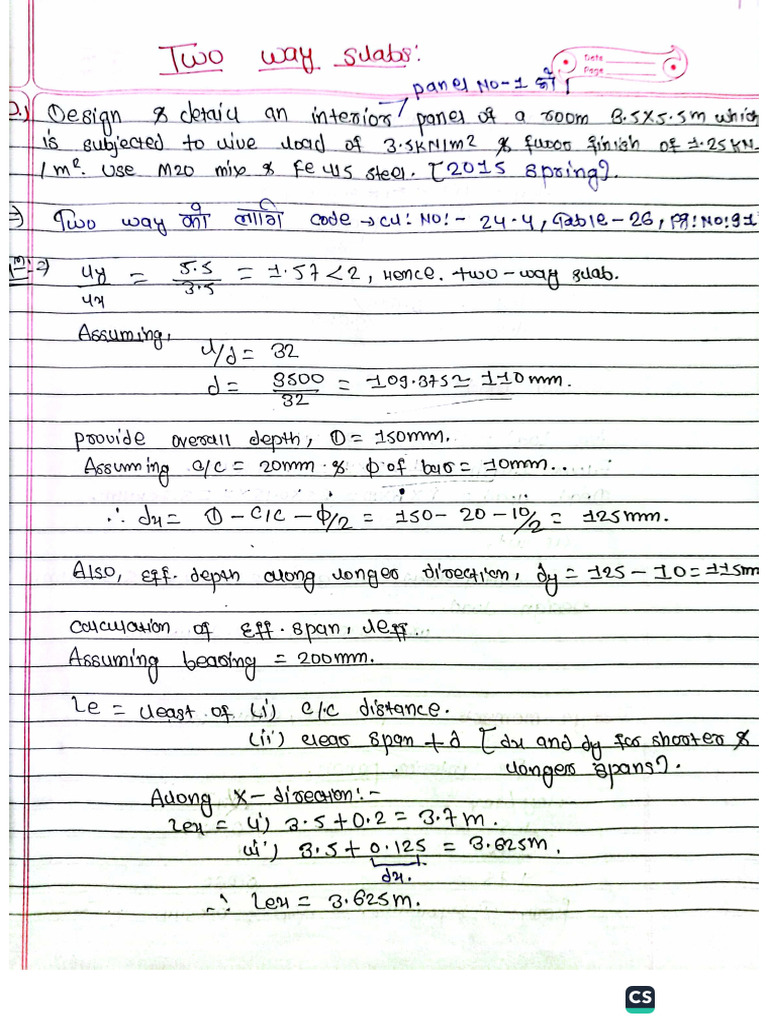 Two way slabs:
Date
Page
panel No-1 हो।
Q.) Design & detail an interior panel of a room 3.5x5.5m which
is subjected to live load of 3.5kN/m2 & floor finish of 1.25KN
/m². Use M20 mix & Fe 415 steel. [2015 Spring].
=) Two way को लागि code → cl: No:- 24.4, Table-26, Pg: No: 91
ly/lx = 5.5/3.5 = 1.57 < 2, Hence. two-way slab.
Assuming,
l/d = 32
d = 3500/32 = 109.375 ≈ 110mm.
provide overall depth, D = 150mm.
Assuming c/c = 20mm & ϕ of bar = 10mm..
∴ dx = D - c/c - ϕ/2 = 150 - 20 - 10/2 = 125mm.
Also, Eff. depth along longer direction, dy = 125 - 10 = 115m
Calculation of Eff. span, leff...
Assuming bearing = 200mm.
le = least of (i) c/c distance.
(ii) clear span + d [dx and dy for shorter &
longer spans].
Along x-direction:-
lex = (i) 3.5 + 0.2 = 3.7m.
(ii) 3.5 + 0.125 = 3.625m.
dx.
∴ lex = 3.625m.
CS